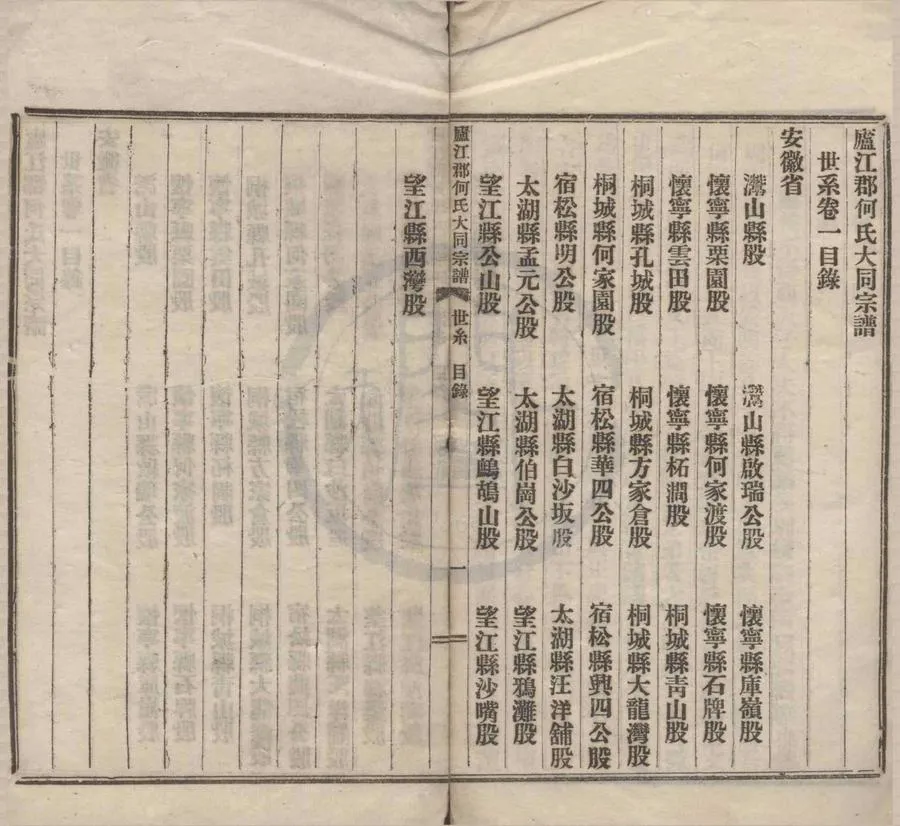 廬江郡何氏大同宗譜
世系卷一目錄
安徽省
灊山縣股 灊山縣啟瑞公股 懷寧縣庫嶺股
懷寧縣栗園股 懷寧縣何家渡股 懷寧縣石牌股
懷寧縣雲田股 懷寧縣柘澗股 桐城縣青山股
桐城縣孔城股 桐城縣方家倉股 桐城縣大龍灣股
桐城縣何家園股 宿松縣華四公股 宿松縣興四公股
宿松縣明公股 太湖縣白沙坂股 太湖縣汪洋舖股
太湖縣孟元公股 太湖縣伯崗公股 望江縣鴉灘股
望江縣公山股 望江縣鷓鴣山股 望江縣沙嘴股
廬江郡何氏大同宗譜 世系 目錄 一
望江縣西灣股